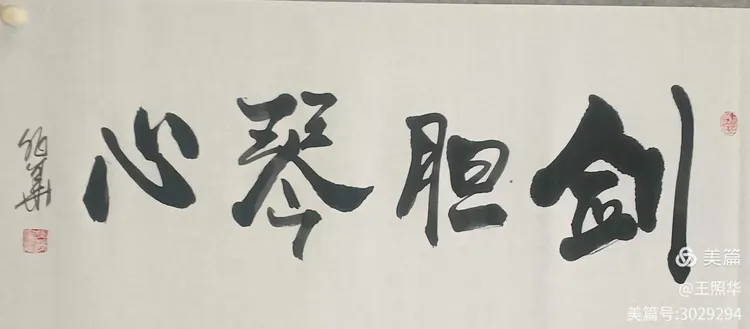 剑胆琴心
美篇
@王照华
美篇号:3029294